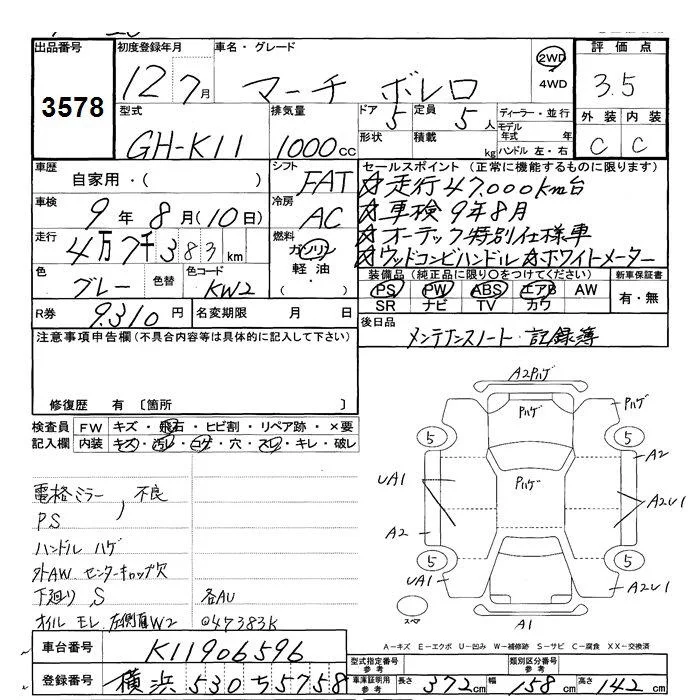 出品番号 初度登録年月 車名・グレード 2WD 評価点
3578 12 7月 マーチ ボレロ 4WD 3.5
型式 排気量 ドア 5 定員 5人 ディーラー・並行 外装 内装
GH-K11 1000cc 形状 積載 kg モデル年式 年 C C
ハンドル 左・右
車歴 シフト セールスポイント (正常に機能するものに限ります)
自家用・( ) FAT ☆走行47,000km台
車検 冷房 ☆車検9年8月
9年8月(10日) AC ☆オーテック特別仕様車
走行 燃料 ☆ウッドコンビハンドル ☆ホワイトメーター
4万7千383km ガソリン
色 色替 色コード 軽油 装備品 (純正品に限り○をつけてください) 新車保証書
グレー KW2 ・( ) PS PW ABS エアB AW 有・無
SR ナビ TV カワ
R券 9,310円 名変期限 月 日 後日品
注意事項申告欄(不具合内容等は具体的に記入して下さい) メンテナンスノート・記録簿
修復歴 有 〔箇所 〕
検査員 FW キズ・飛石・ヒビ割・リペア跡・×要
記入欄 内装 キズ・汚レ・コゲ・穴・スレ・キレ・破レ
電格ミラー, 不良
PS
ハンドル ハゲ
外AW センターキャップ欠
下廻り S 各AU
オイル モレ 左側面W2 @47383K
A2Pハゲ
Pハゲ Pハゲ
5 5 A2
Pハゲ
UA1 A2U1
A2
5 5
UA1 A2U1
スペア A1
A-キズ E-エクボ U-凹み W-補修跡 S-サビ C-腐食 XX-交換済
車台番号 K11906596
型式指定番号 参考 類別区分番号 参考
登録番号 横浜530ち5758 車庫証明用 参考 長さ372cm 幅158cm 高さ142cm